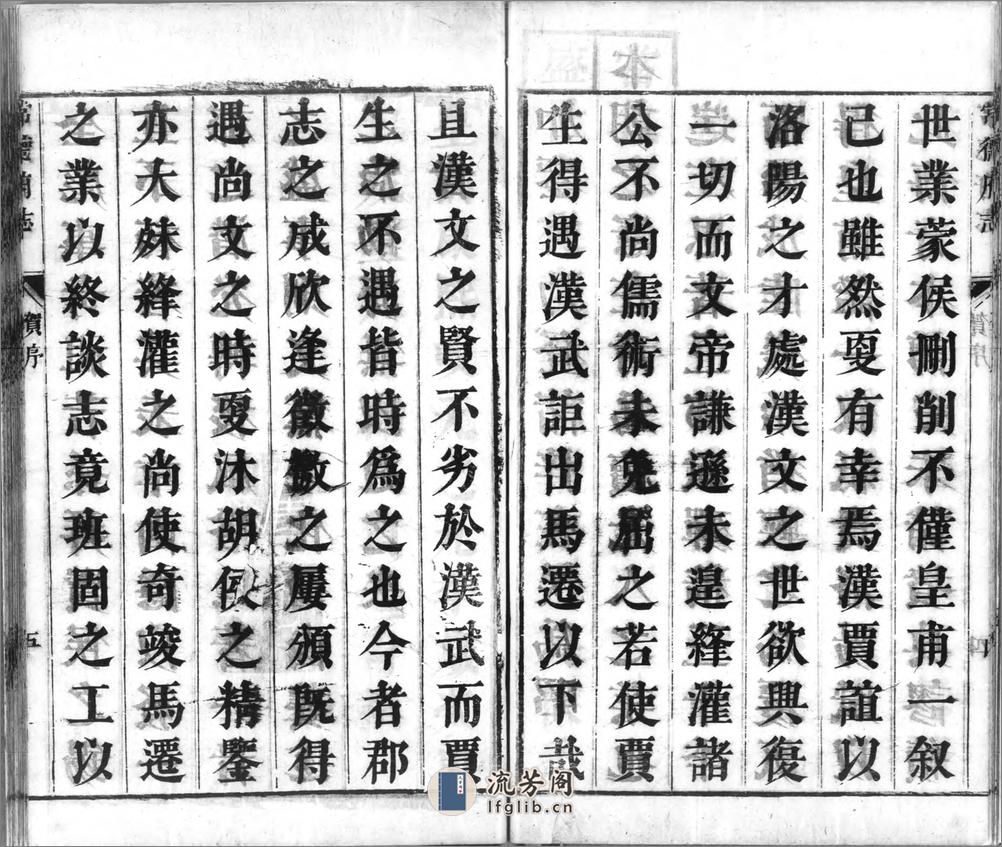 常德府志
賀序
四
世業蒙侯刪削不僅皇甫一叙
已也雖然更有幸焉漢賈誼以
洛陽之才處漢文之世欲興復
一切而文帝謙遜未遑絳灌諸
公不尚儒術未免屈之若使賈
生得遇漢武詎出馬遷以下哉
且漢文之賢不劣於漢武而賈
生之不遇皆時爲之也今者郡
志之成欣逢徽徽之屢頒既得
遇尚文之時更沐胡侯之精鑒
亦大殊絳灌之尚使奇竣馬遷
之業以終談志竟班固之工以
志
賀序
五
流芳阁
lfglib.cn